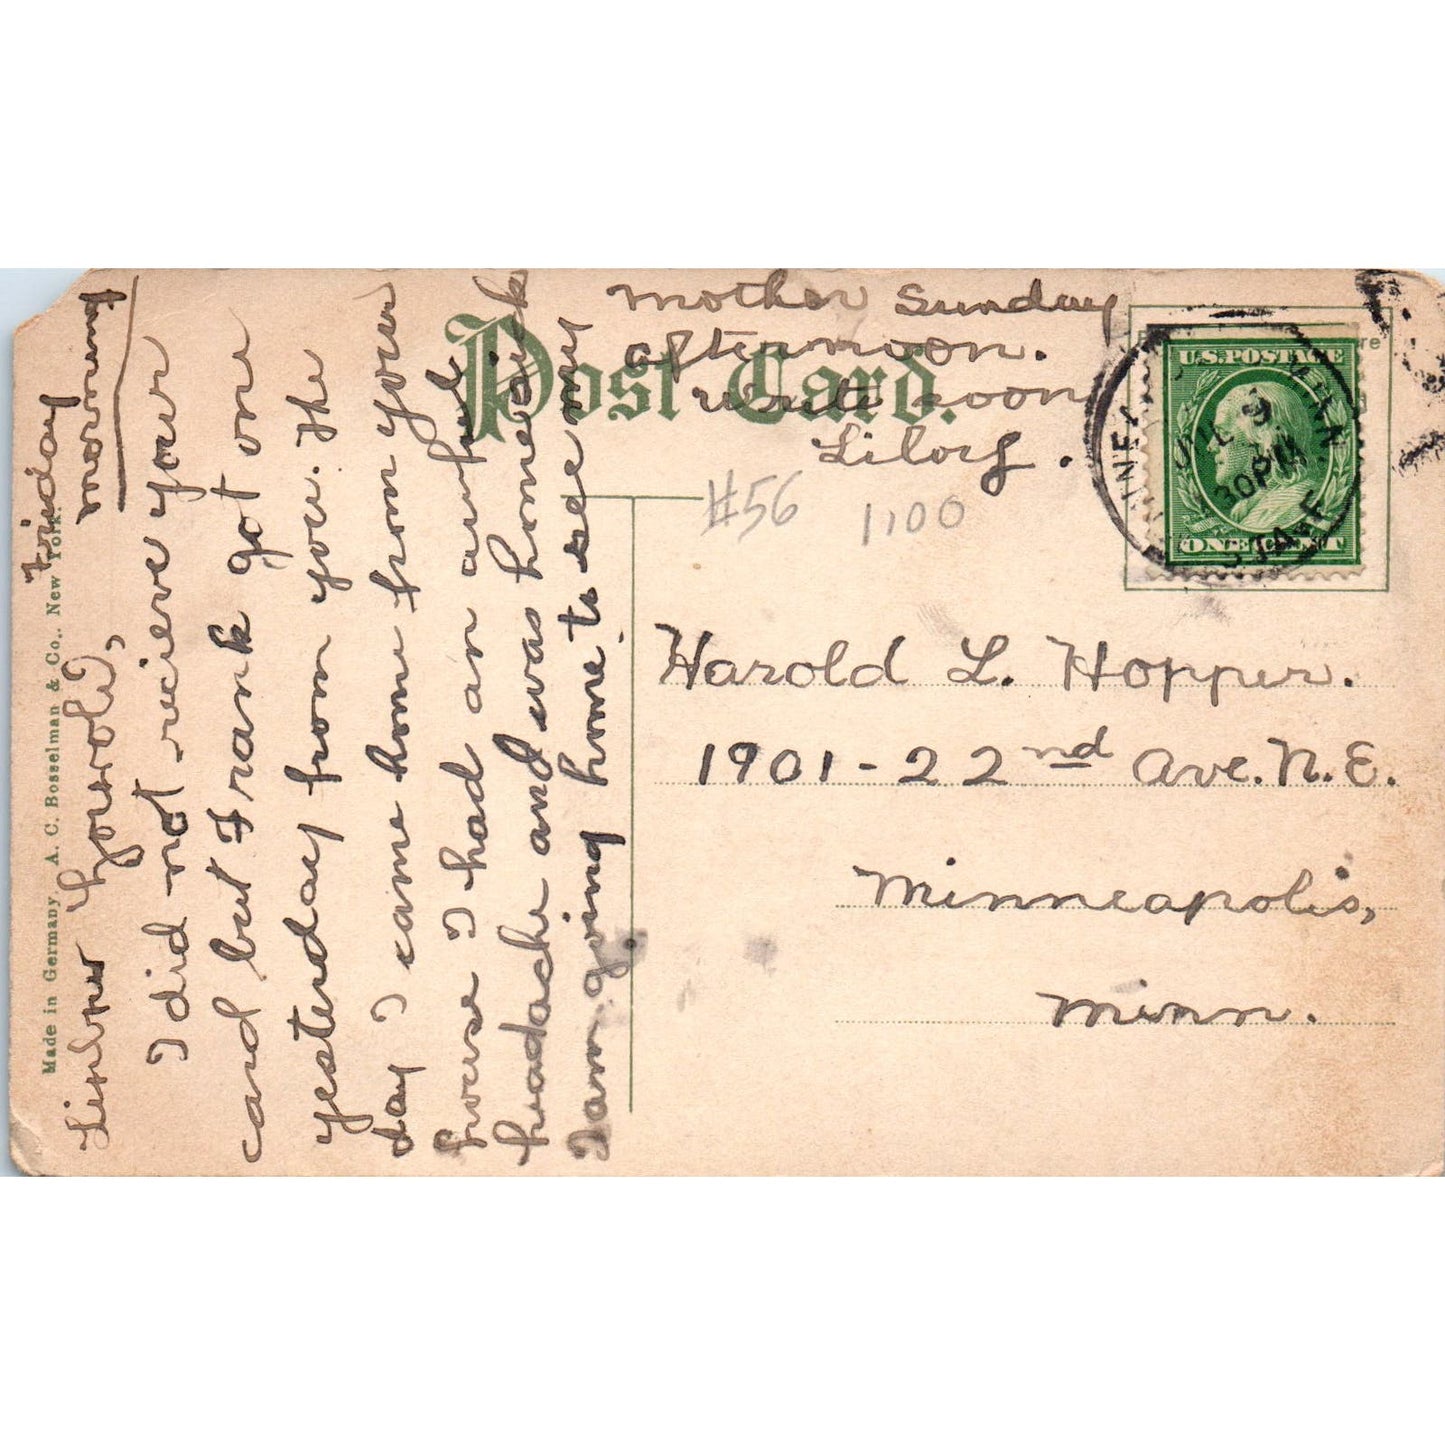 Friday
morning
Lieber Harold,
I did not recieve your
card but Frank got one
yesterday from you. The
day I came home from your
house I had an awful
headache and was homesick
I am going home to see my
mother Sunday
afternoon.
write soon
Made in Germany, A. C. Bosselman & Co., New York.
Post Card.
U.S. POSTAGE
ONE CENT
MINN.
30 PM
STA. F
#56
1,00
Harold L. Hopper.
1901-22nd Ave. N.E.
Minneapolis,
Minn.